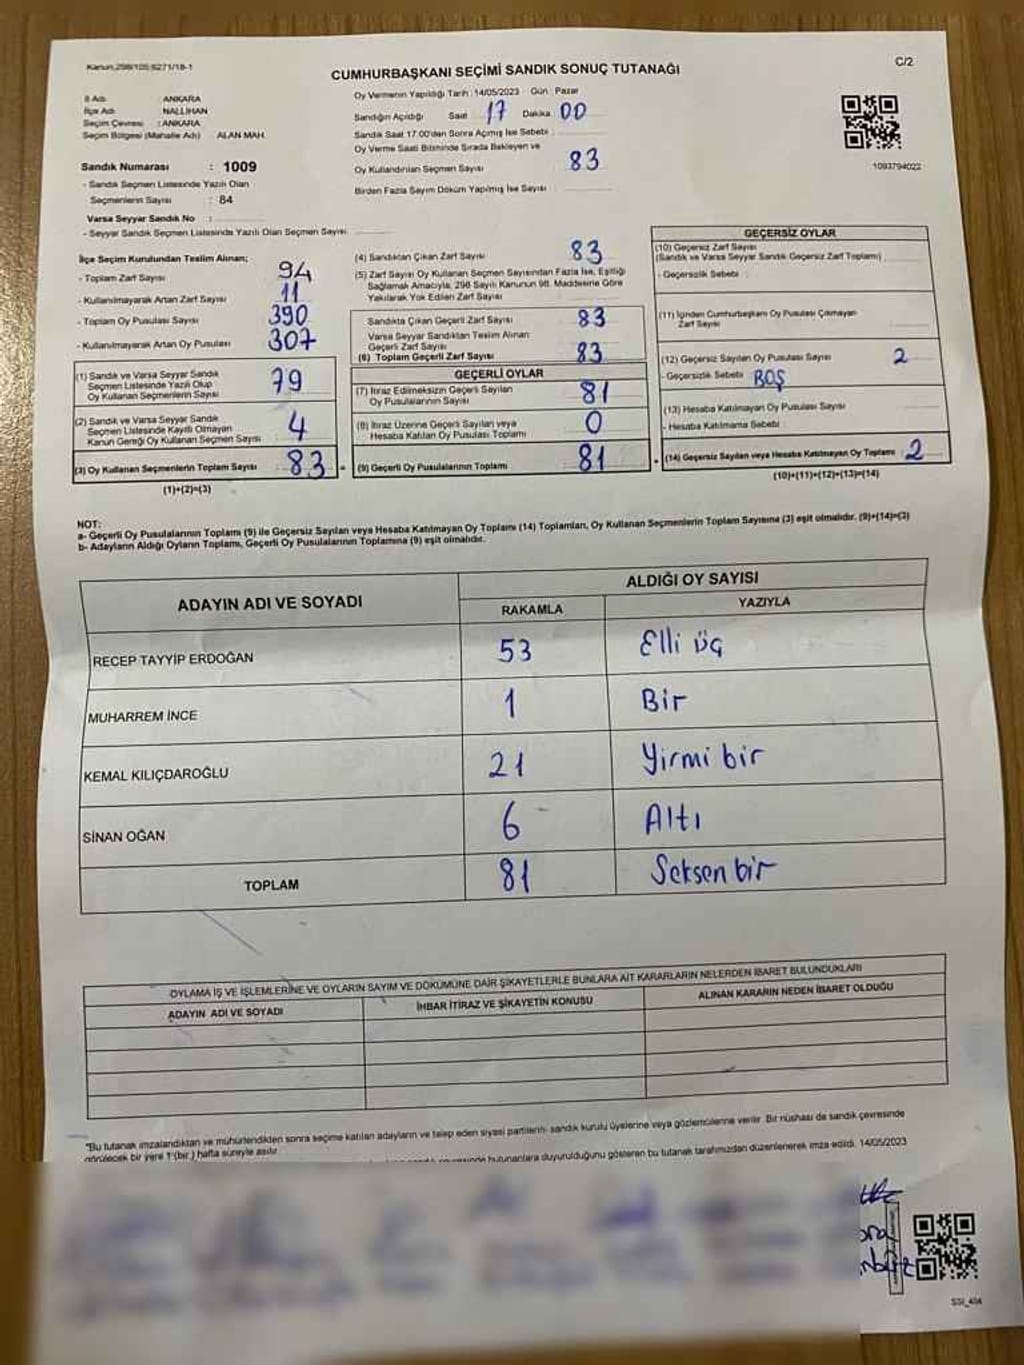 Kanun:298/105;6271/18-1
C/2
CUMHURBAŞKANI SEÇİMİ SANDIK SONUÇ TUTANAĞI
İl Adı : ANKARA
İlçe Adı : NALLIHAN
Seçim Çevresi : ANKARA
Seçim Bölgesi (Mahalle Adı) ALAN MAH.
Sandık Numarası : 1009
- Sandık Seçmen Listesinde Yazılı Olan
Seçmenlerin Sayısı : 84
Varsa Seyyar Sandık No :
- Seyyar Sandık Seçmen Listesinde Yazılı Olan Seçmen Sayısı
Oy Vermenin Yapıldığı Tarih :14/05/2023 Gün : Pazar
Sandığın Açıldığı Saat 17 Dakika 00
Sandık Saat 17.00'den Sonra Açılmış İse Sebebi :
Oy Verme Saati Bitiminde Sırada Bekleyen ve
Oy Kullandırılan Seçmen Sayısı 83
Birden Fazla Sayım Döküm Yapılmış İse Sayısı
1093794022
İlçe Seçim Kurulundan Teslim Alınan;
- Toplam Zarf Sayısı 94
- Kullanılmayarak Artan Zarf Sayısı 11
- Toplam Oy Pusulası Sayısı 390
- Kullanılmayarak Artan Oy Pusulası 307
(1) Sandık ve Varsa Seyyar Sandık
Seçmen Listesinde Yazılı Olup
Oy Kullanan Seçmenlerin Sayısı 79
(2) Sandık ve Varsa Seyyar Sandık
Seçmen Listesinde Kayıtlı Olmayan
Kanun Gereği Oy Kullanan Seçmen Sayısı 4
(3) Oy Kullanan Seçmenlerin Toplam Sayısı 83
(1)+(2)=(3)
(4) Sandıktan Çıkan Zarf Sayısı 83
(5) Zarf Sayısı Oy Kullanan Seçmen Sayısından Fazla İse, Eşitliği
Sağlamak Amacıyla, 298 Sayılı Kanunun 98. Maddesine Göre
Yakılarak Yok Edilen Zarf Sayısı
Sandıkta Çıkan Geçerli Zarf Sayısı 83
Varsa Seyyar Sandıktan Teslim Alınan
Geçerli Zarf Sayısı
(6) Toplam Geçerli Zarf Sayısı 83
GEÇERLİ OYLAR
(7) İtiraz Edilmeksizin Geçerli Sayılan
Oy Pusulalarının Sayısı 81
(8) İtiraz Üzerine Geçerli Sayılan veya
Hesaba Katılan Oy Pusulası Toplamı 0
= (9) Geçerli Oy Pusulalarının Toplamı 81
GEÇERSİZ OYLAR
(10) Geçersiz Zarf Sayısı
(Sandık ve Varsa Seyyar Sandık Geçersiz Zarf Toplamı)
- Geçersizlik Sebebi :
(11) İçinden Cumhurbaşkanı Oy Pusulası Çıkmayan
Zarf Sayısı
(12) Geçersiz Sayılan Oy Pusulası Sayısı 2
- Geçersizlik Sebebi BOŞ
(13) Hesaba Katılmayan Oy Pusulası Sayısı
- Hesaba Katılmama Sebebi :
+ (14) Geçersiz Sayılan veya Hesaba Katılmayan Oy Toplamı 2
(10)+(11)+(12)+(13)=(14)
NOT:
a- Geçerli Oy Pusulalarının Toplamı (9) ile Geçersiz Sayılan veya Hesaba Katılmayan Oy Toplamı (14) Toplamları, Oy Kullanan Seçmenlerin Toplam Sayısına (3) eşit olmalıdır. (9)+(14)=(3)
b- Adayların Aldığı Oyların Toplamı, Geçerli Oy Pusulalarının Toplamına (9) eşit olmalıdır.
ADAYIN ADI VE SOYADI
ALDIĞI OY SAYISI
RAKAMLA YAZIYLA
RECEP TAYYİP ERDOĞAN 53 Elli üç
MUHARREM İNCE 1 Bir
KEMAL KILIÇDAROĞLU 21 Yirmi bir
SİNAN OĞAN 6 Altı
TOPLAM 81 Seksen bir
OYLAMA İŞ VE İŞLEMLERİNE VE OYLARIN SAYIM VE DÖKÜMÜNE DAİR ŞİKAYETLERLE BUNLARA AİT KARARLARIN NELERDEN İBARET BULUNDUKLARI
ADAYIN ADI VE SOYADI İHBAR İTİRAZ VE ŞİKAYETİN KONUSU ALINAN KARARIN NEDEN İBARET OLDUĞU
"Bu tutanak imzalandıktan ve mühürlendikten sonra seçime katılan adayların ve talep eden siyasi partilerin sandık kurulu üyelerine veya gözlemcilerine verilir. Bir nüshası da sandık çevresinde
görülecek bir yere 1 (bir) hafta süreyle asılır.
bulunanlara duyurulduğunu gösteren bu tutanak tarafımızdan düzenlenerek imza edildi. 14/05/2023
SSI_404